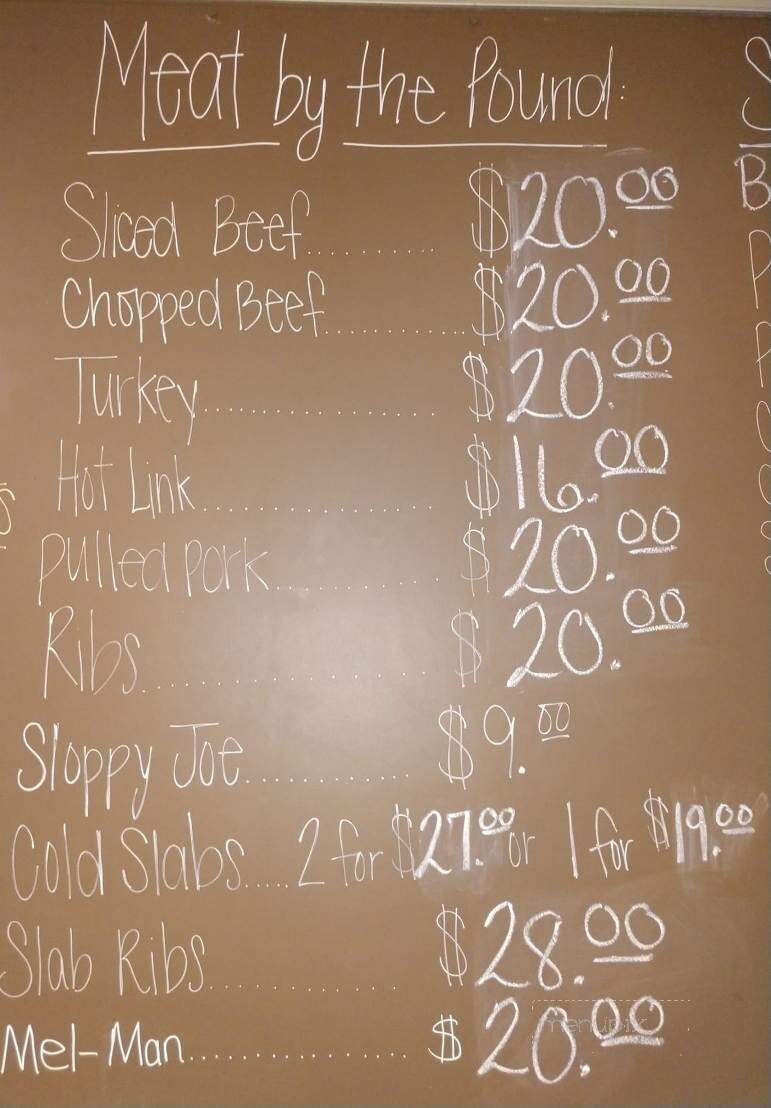 Meat by the Pound:
Sliced Beef.......... $20.00
Chopped Beef.............. $20.00
Turkey.................. $20.00
Hot Link.................. $16.00
Pulled Pork............. $20.00
Ribs...................... $20.00
Sloppy Joe............. $9.00
Cold Slabs..... 2 for $27.00 or 1 for $19.00
Slab Ribs............... $28.00
Mel-Man................. $20.00
menupix